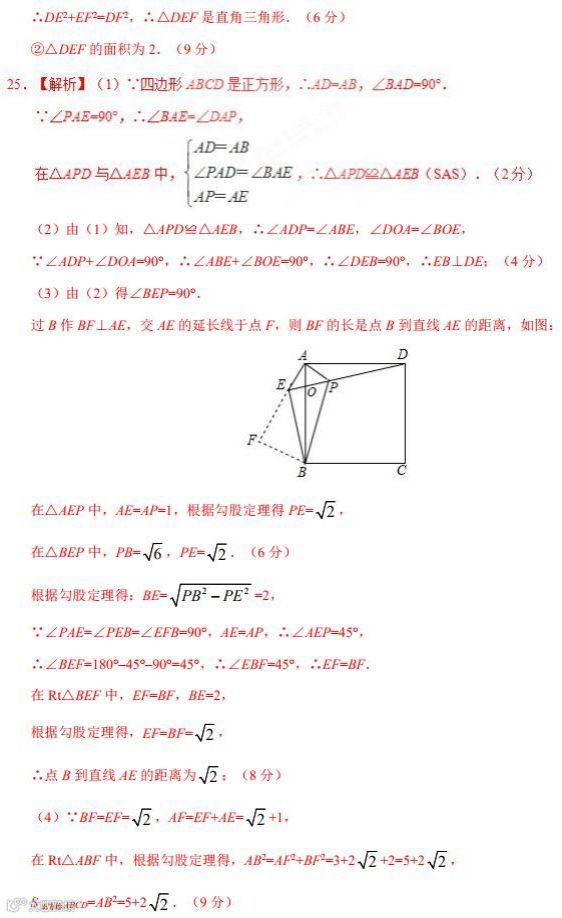 ∴DE²+EF²=DF²，∴△DEF 是直角三角形．（6 分）
②△DEF 的面积为 2．（9 分）
25．【解析】（1）∵四边形 ABCD 是正方形，∴AD=AB，∠BAD=90°．
∵∠PAE=90°，∴∠BAE=∠DAP，
AD=AB
在△APD 与△AEB 中，{∠PAD=∠BAE，∴△APD≌△AEB（SAS）．（2 分）
AP=AE
（2）由（1）知，△APD≌△AEB，∴∠ADP=∠ABE，∠DOA=∠BOE，
∵∠ADP+∠DOA=90°，∴∠ABE+∠BOE=90°，∴∠DEB=90°，∴EB⊥DE；（4 分）
（3）由（2）得∠BEP=90°．
过 B 作 BF⊥AE，交 AE 的延长线于点 F，则 BF 的长是点 B 到直线 AE 的距离，如图：
A D
E O P
F
B C
在△AEP 中，AE=AP=1，根据勾股定理得 PE=√2，
在△BEP 中，PB=√6，PE=√2．（6 分）
根据勾股定理得：BE=√(PB²−PE²)=2，
∵∠PAE=∠PEB=∠EFB=90°，AE=AP，∴∠AEP=45°，
∴∠BEF=180°–45°–90°=45°，∴∠EBF=45°，∴EF=BF．
在 Rt△BEF 中，EF=BF，BE=2，
根据勾股定理得，EF=BF=√2，
∴点 B 到直线 AE 的距离为√2；（8 分）
（4）∵BF=EF=√2，AF=EF+AE=√2+1，
在 Rt△ABF 中，根据勾股定理得，AB²=AF²+BF²=3+2√2+2=5+2√2，
ABCD=AB²=5+2√2．（9 分）